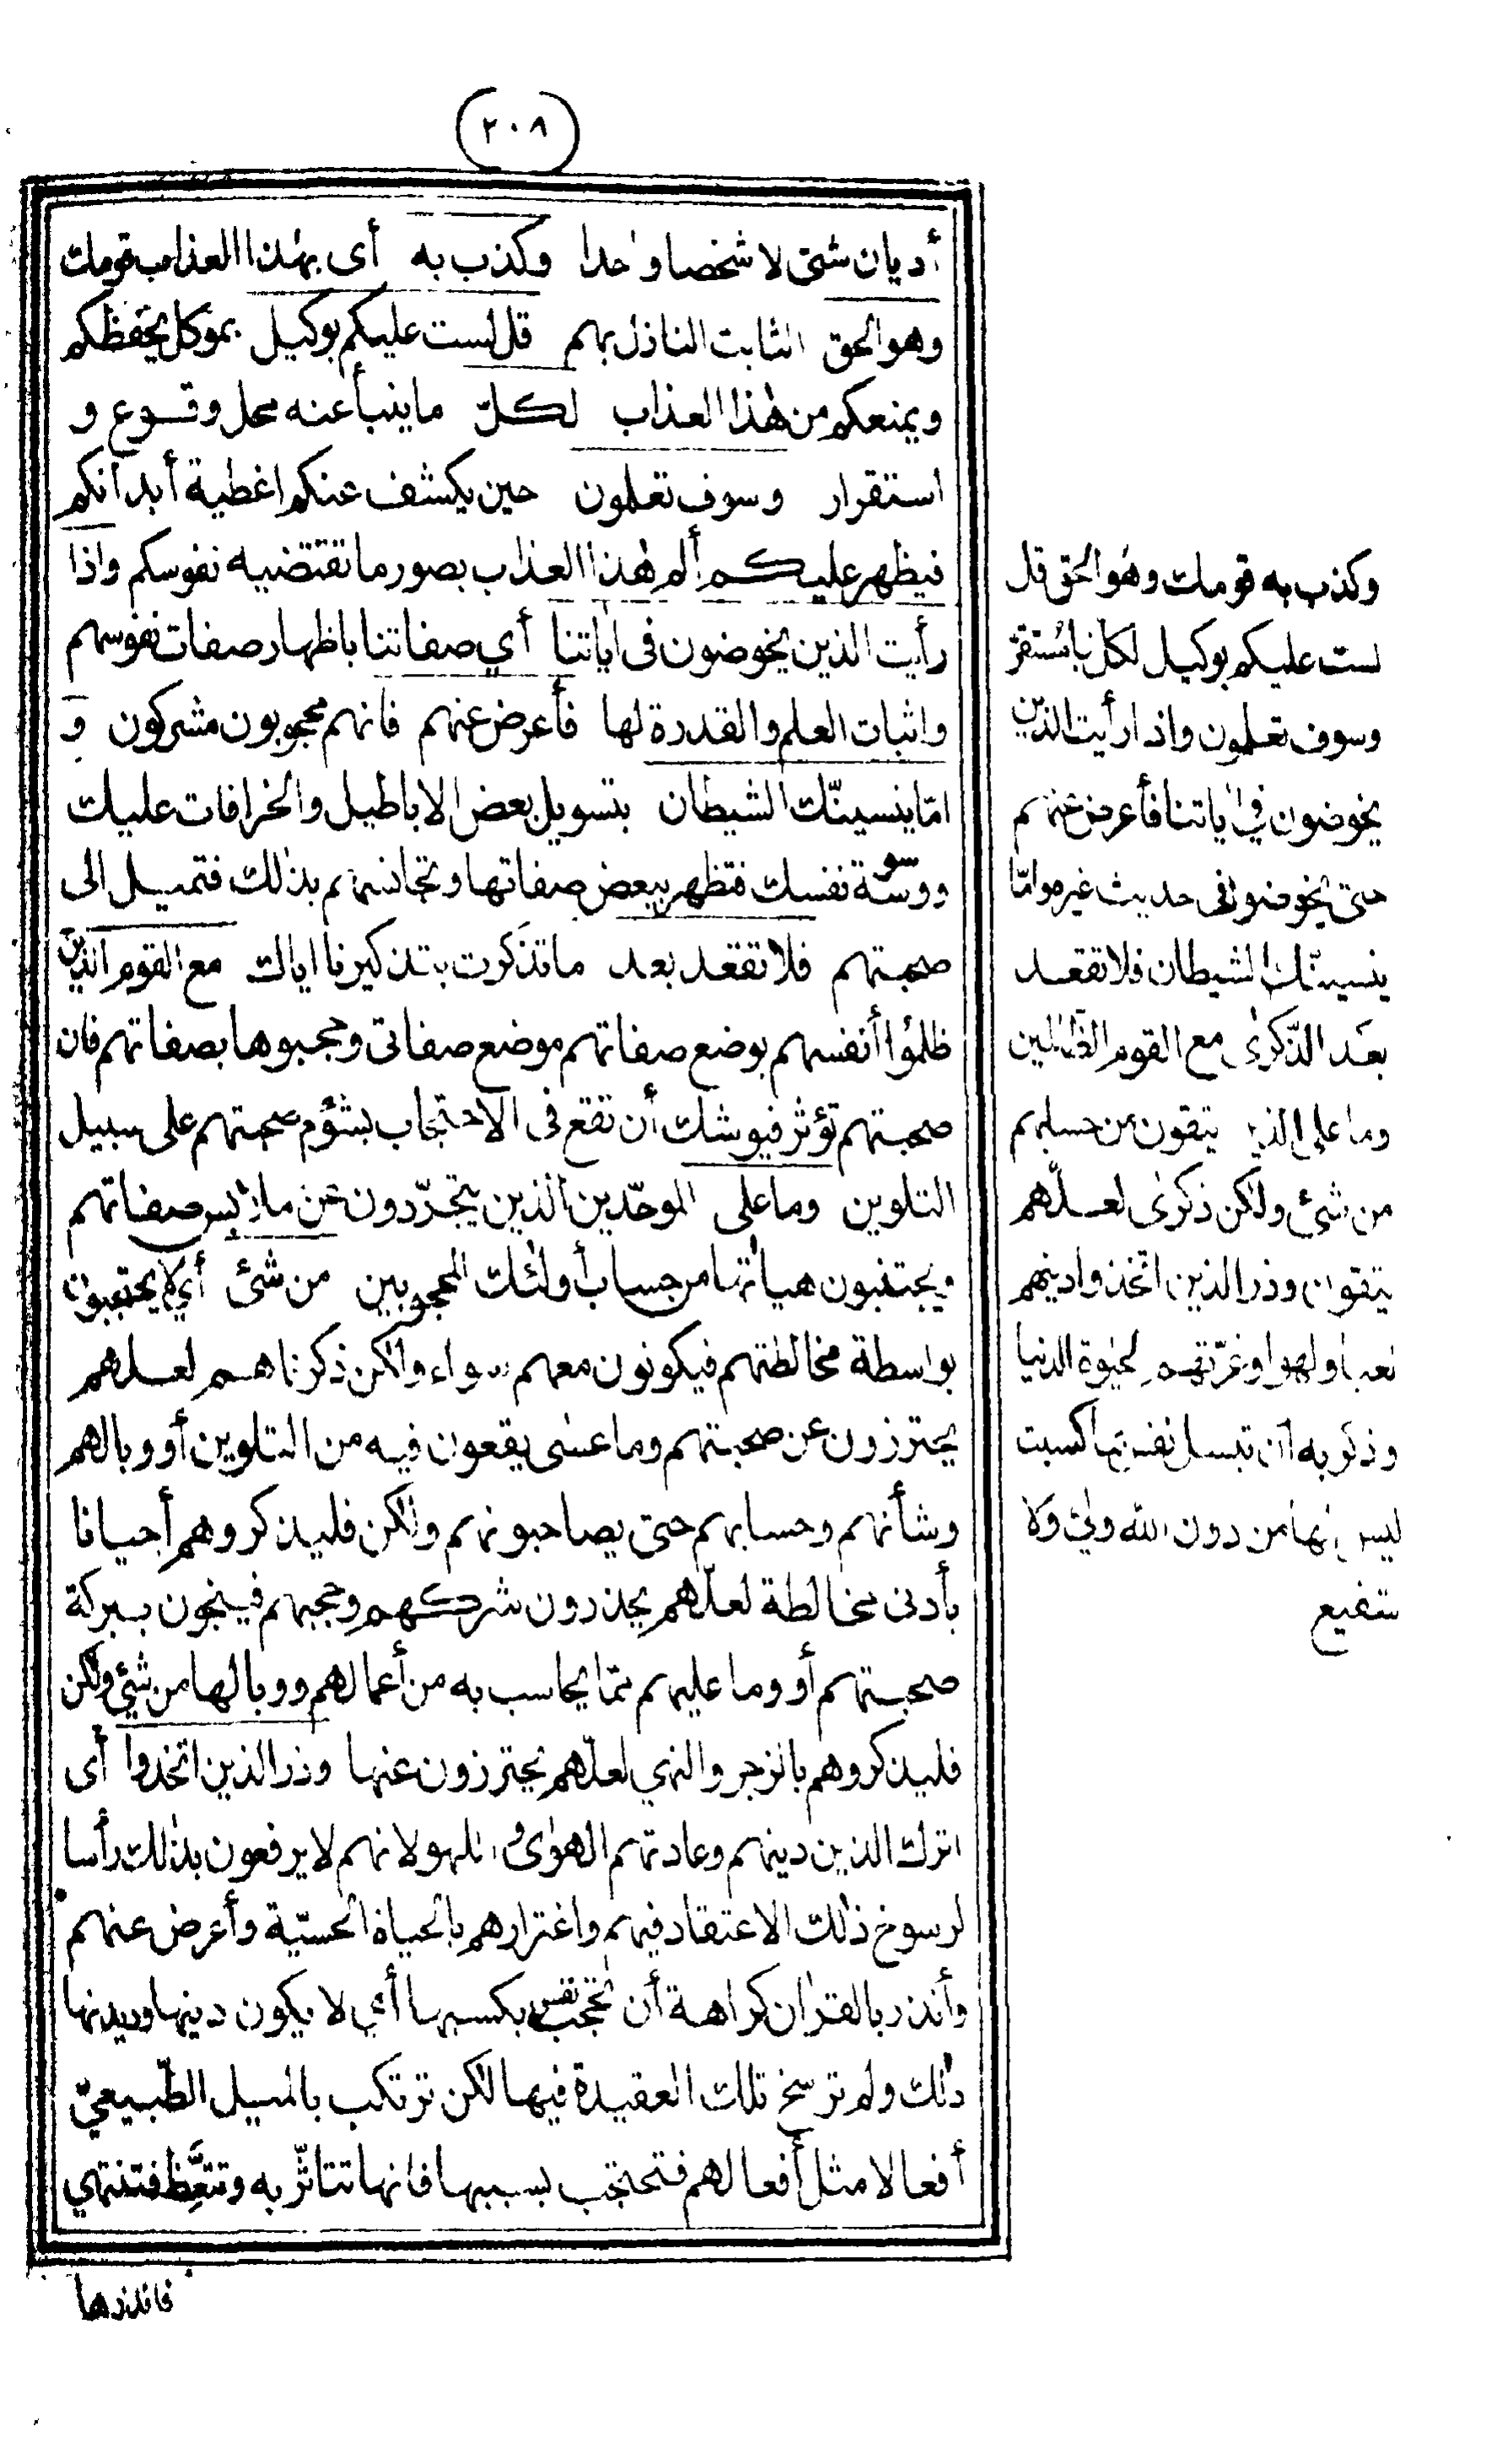 (٢٠٨)
أديان شتى لا شخصا واحدا وكذب به أى بهذا العذاب قومك
وهو الحق الثابت النازل بهم قل لست عليكم بوكيل بموكل يحفظكم
ويمنعكم من هٰذا العذاب لكلّ ما ينبأ عنه محل وقوع و
استقرار وسوف تعلمون حين يكشف عنكم اغطية أبدانكم
فيظهر عليكم ألم هٰذا العذاب بصور ما تقتضيه نفوسكم واذا
رأيت الذين يخوضون فى اٰياتنا أي صفاتنا باظهار صفات نفوسهم
واثبات العلم والقدرة لها فأعرض عنهم فانهم محجوبون مشركون و
امّا ينسينّك الشيطان بتسويل بعض الاباطيل والخرافات عليك
ووسوسة نفسك فتظهر ببعض صفاتها وتجانسهم بذٰلك فتميل الى
صحبتهم فلا تقعد بعد ما تذكرت بتذكيرنا اياك مع القوم الذين
ظلمؤا أنفسهم بوضع صفاتهم موضع صفاتى وحجبوها بصفاتهم فان
صحبتهم تؤثر فيوشك أن تقع فى الاحتجاب بشؤم صحبتهم على سبيل
التلوين وما على الموحّدين الذين يتجرّدون عن ملابس صفاتهم
ويجتنبون هياٰتها من حساب أولئك المحجوبين من شئ أي لا يحتجبون
بواسطة مخالطتهم فيكونون معهم سواء ولٰكن ذكرناهم لعلهم
يحترزون عن صحبتهم وما عسٰى يقعون فيه من التلوين أو وبالهم
وشأنهم وحسابهم حتى يصاحبونهم ولٰكن فليذكروهم أحيانا
بأدنى مخالطة لعلّهم يحذرون شركهم وحجبهم فينجون ببركة
صحبتهم أو وما عليهم ممّا يحاسب به من أعمالهم ووبالها من شئ ولٰكن
فليذكروهم بالزجر والنهي لعلّهم يحترزون عنها وذر الذين اتخذوا أى
اترك الذين دينهم وعادتهم الهوٰى و اللهو لانهم لا يرفعون بذٰلك رأسا
لرسوخ ذٰلك الاعتقاد فيهم واغترارهم بالحياة الحسيّة وأعرض عنهم
وأنذر بالقرٰان كراهة أن تحجب نفس بكسبها أي لا يكون دينها وديدنها
ذٰلك ولم ترسخ تلك العقيدة فيها لٰكن ترتكب بالميل الطّبيعيّ
أفعالا مثل أفعالهم فتحتجب بسببها فانها تتأثّر به وتتّعظ فتنتهي
فانذرها
وكذب به قومك وهو الحق قل
لست عليكم بوكيل لكل نبا مستقر
وسوف تعلمون واذا رأيت الذين
يخوضون في اٰياتنا فأعرض عنهم
حتى يخوضوا فى حديث غيره وامّا
ينسينّك الشيطان فلا تقعد
بعد الذّكرٰى مع القوم الظالمين
وما على الذين يتقون من حسابهم
من شئ ولٰكن ذكرٰى لعلّهم
يتقون وذر الذين اتّخذوا دينهم
لعبا ولهوا وغرّتهم الحيٰوة الدنيا
وذكر به أن تبسل نفس بما كسبت
ليس لها من دون الله ولى ولا
شفيع